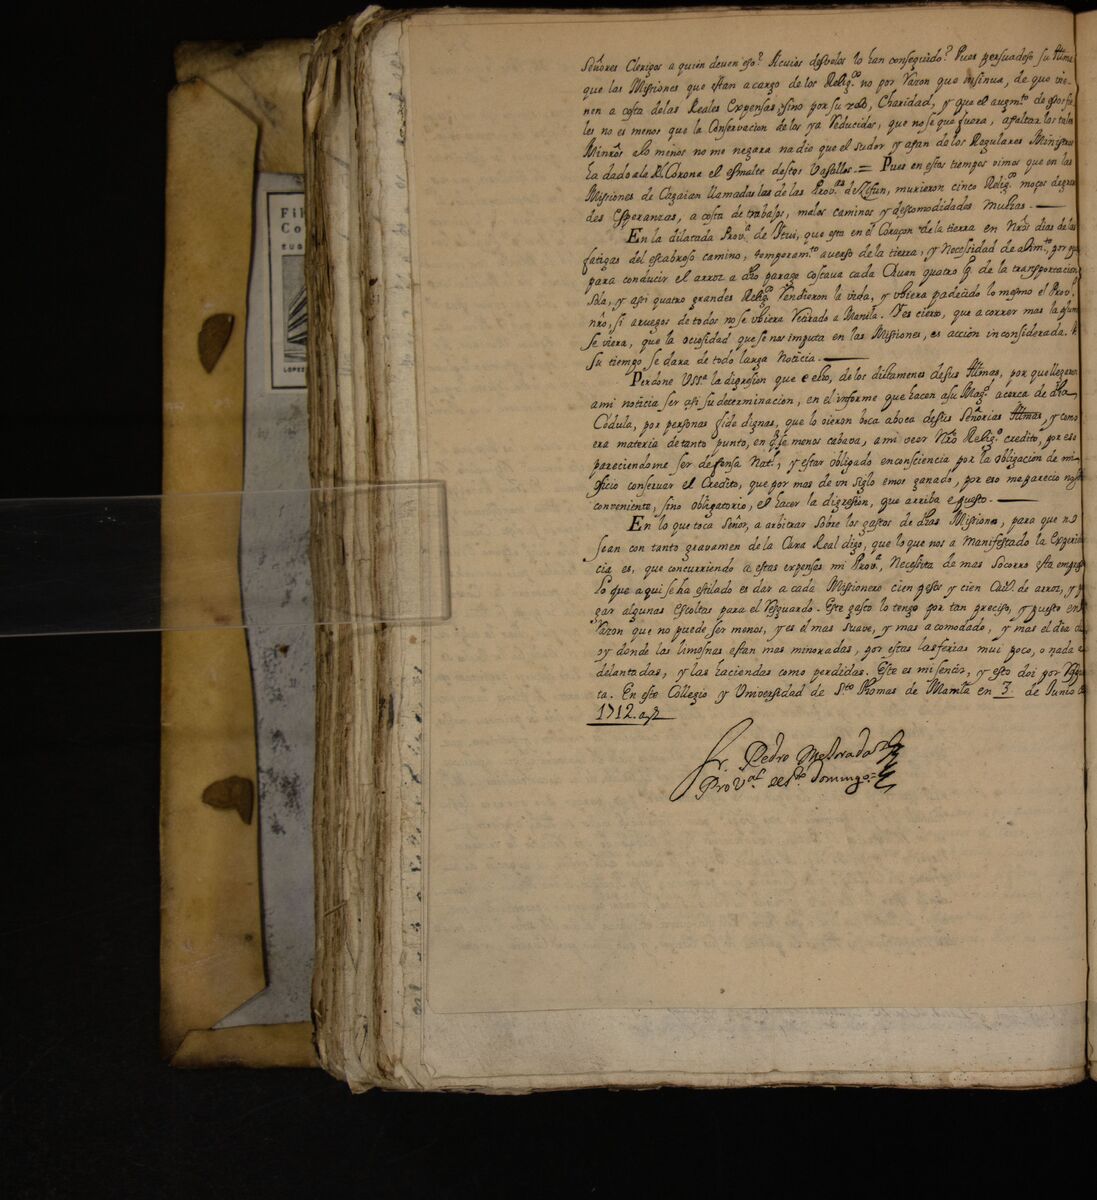 Señores Clerigos a quien deven eso? Acuios desvelos lo han conseguido? Pues persuadese su Alma
que las Missiones que estan a cargo de los Relig.os no por razon que insinua, de que vie-
nen a costa de las Reales Expensas, sino por su zelo, Charidad, y que el augm.to de essos fie-
les no es menos que la Conservacion de los ya reducidos, que no se que fuera, a faltar los tales
Minros alo menos no me negara nadie que el sudor y afan de los Regulares Ministros
ha dado ala Rl. Corona el esmalte destos Vasallos.= Pues en estos tiempos vimos que en las
Missiones de Cagaian llamadas las de las Prov.as de Zifun, murieron cinco Relig.os moços de gran
des Esperanzas, a costa de trabajos, malos caminos y descomodidades muchas.
En la dilatada Prov.a de Ytui, que esta en el Coraçon de la tierra en Nros dias de las
fatigas del escabroso camino, temperam.to avieso de la tierra, y Necessidad de alim.to, por que
para conducir el arroz a dho parage costava cada Cavan quatro p.s de la transportacion
sola, y assi quatro grandes Relig.os rendieron la vida, y ubiera padecido lo mesmo el Prov.l
nro, si a ruegos de todos no se ubiera retirado a Manila. Yes cierto, que a correr mas la pluma
se viera, que la ociosidad que se nos imputa en las Missiones, es acción inconsiderada. A
su tiempo se dara de todo larga Noticia.
Perdone USS.a la digresion que e echo, de los dictamenes de sus Almas, por que llegaron
a mi noticia ser asi su determinacion, en el informe que hacen a su Mag.d acerca de dha
Cedula, por personas fide dignas, que lo oieron boca a boca de sus Señorias Almas, y como
era materia de tanto punto, en q.e se menos cabava, a mi veer Nro Relig.o credito, por eso
pareciendome ser defensa Nat.l, y estar obligado en consciencia por la obligación de mi
Oficio conservar el Credito, que por mas de un siglo emos ganado, por eso me parecio no solo
conveniente, sino obligatorio, el hacer la digresion, que arriba e puesto.
En lo que toca Señor, a arbitrar sobre los gastos de dhas Missiones, para que no
sean con tanto gravamen de la Caxa Real digo, que lo que nos a manifestado la Experien
cia es, que concurriendo a estas expensas mi Prov.a Necesita de mas Socorro esta empresa
Lo que aqui se ha estilado es dar a cada Missionero cien pesos y cien Cav.s de arroz, y pa
gar algunas Escoltas para el resguardo. Este gasto lo tengo por tan preciso, y puesto en
razon que no puede ser menos, y es el mas suave, y mas acomodado, y mas el dia de
oy donde las limosnas estan mas minoradas, por estar las ferias mui poco, o nada a
delantadas, y las haciendas como perdidas. Este es mi sentir, y esto doi por respues
ta. En este Collegio y Universidad de S.to Thomas de Manila en 3. de Junio de
1712. as
Fr. Pedro Mejorada
Prov.al de S.to Domingo
Fil
Co
LOPEZ